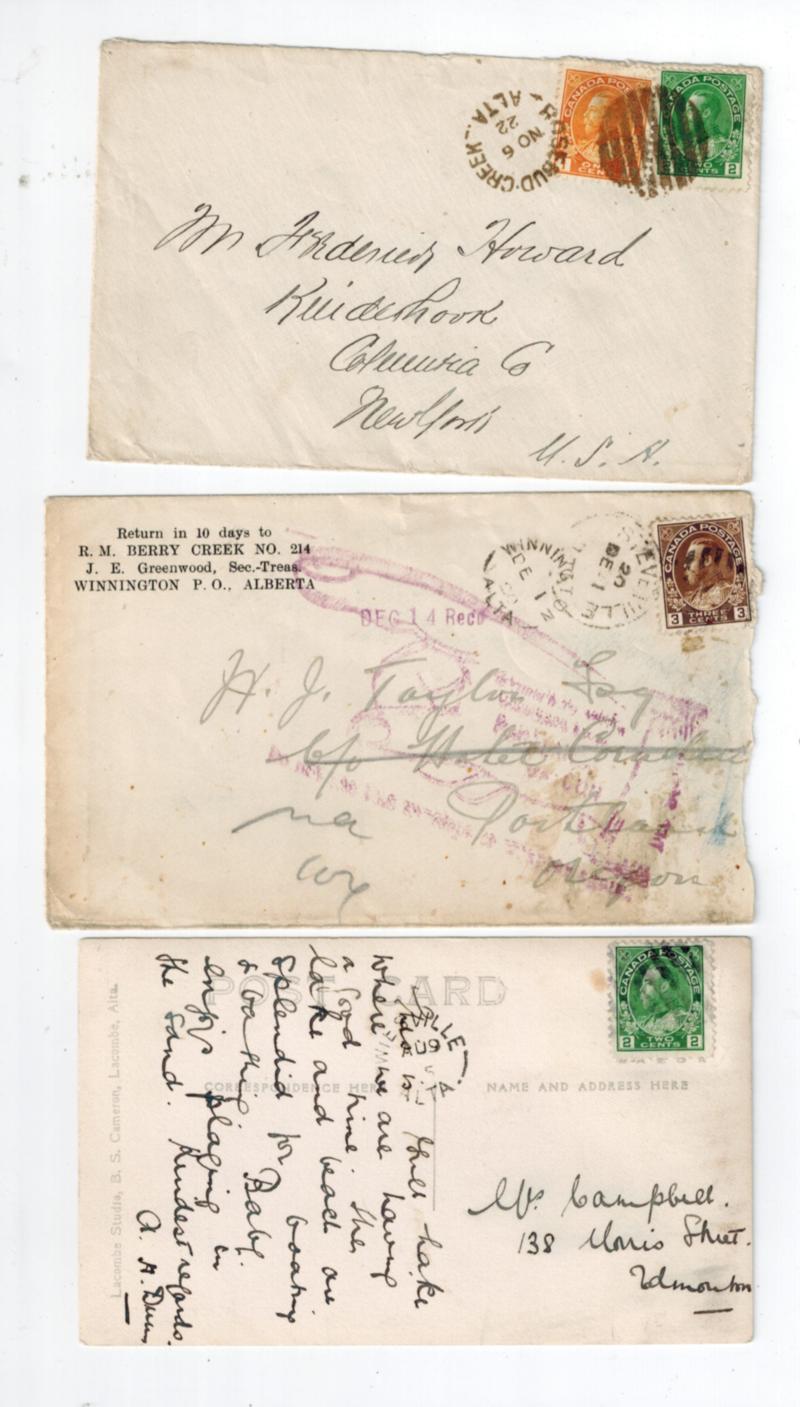 ROSEBUD·CREEK
NO 6
22
ALTA.
CANADA POSTAGE
TWO
2 CENTS 2
Mr Frederick Howard
Kinderhook
Columbia Co
New York
U.S.A.
Return in 10 days to
R. M. BERRY CREEK NO. 214
J. E. Greenwood, Sec.-Treas.
WINNINGTON P. O., ALBERTA
DEC 14 Recd
WINNINGTON
DE 1
ALTA
DE 1
20
CANADA POSTAGE
THREE
3 CENTS 3
H. J. Taylor Esq
c/o
Portland
Oregon
POST CARD
CANADA POSTAGE
TWO
2 CENTS 2
CORRESPONDENCE HERE
NAME AND ADDRESS HERE
This is the lake
where we are having
a good time. The
lake and beach are
splendid for boating
& bathing. Baby
enjoys playing in
the sand. Kindest regards.
A. H.
Mrs Campbell.
138 Morris Street.
Edmonton
Lacombe Studio, B. S. Cameron, Lacombe, Alta.